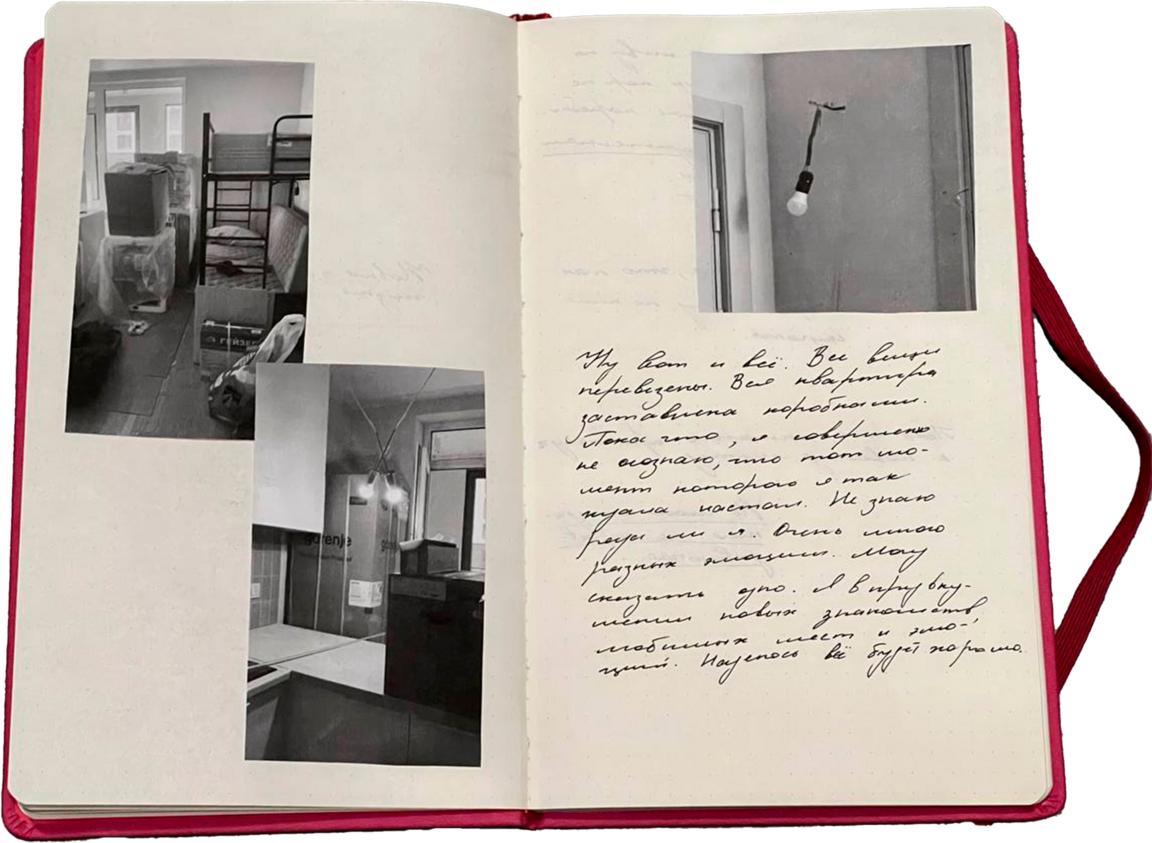 ГЕЙЗЕР
gorenje
Ну вот и всё. Все вещи
перевезены. Вся квартира
заставлена коробками.
Пока что, я совершенно
не осознаю, что тот мо-
мент которого я так
ждала настал. Не знаю
рада ли я. Очень много
разных эмоций. Могу
сказать одно. Я в предвку-
шении новых знакомств,
любимых мест и эмо-
ций. Надеюсь всё будет хорошо.